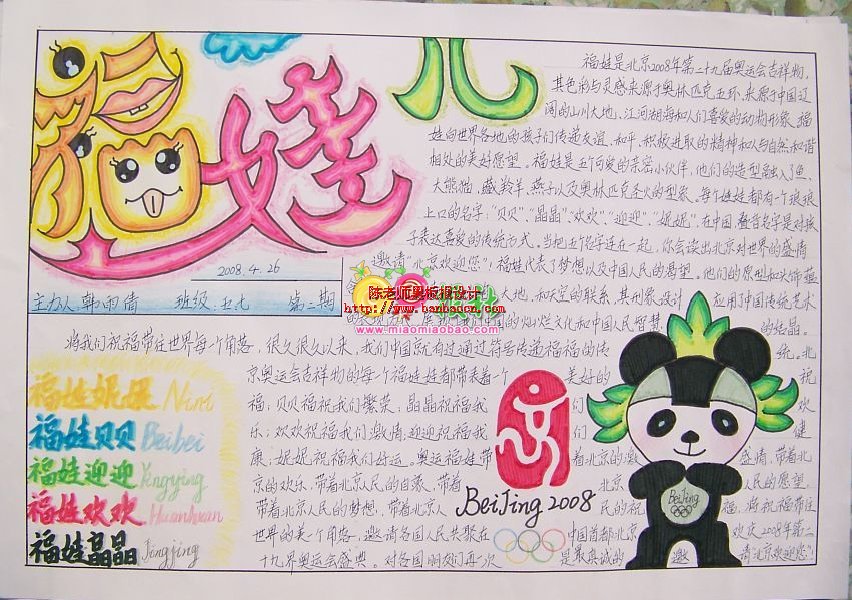 福娃儿
福娃是北京2008年第二十九届奥运会吉祥物,
其色彩与灵感来源于奥林匹克五环,来源于中国辽
阔的山川大地、江河湖海和人们喜爱的动物形象。福
娃向世界各地的孩子们传递友谊、和平、积极进取的精神和人与自然和谐
相处的美好愿望。福娃是五个可爱的亲密小伙伴,他们的造型融入了鱼、
大熊猫、藏羚羊、燕子以及奥林匹克圣火的型象。每个娃娃都有一个琅琅
上口的名字:"贝贝"、"晶晶"、"欢欢"、"迎迎"、"妮妮",在中国,叠音名字是对孩
子表达喜爱的传统方式。当把五个名字连在一起,你会读出北京对世界的盛情
邀请"北京欢迎您"!福娃代表了梦想以及中国人民的渴望。他们的原型和头饰蕴
2008.4.26
大地、和天空的联系,其形象设计 应用了中国传统艺术
主办人 韩雨倩 班级 五七 第二期
陈老师黑板报设计
www.banbaocn.com
www.miaomiaobao.com
的灿烂文化和中国人民智慧 的结晶。
将我们祝福带往世界每个角落,很久很久以来,我们中国就有过通过符号传递福福的传 统。北
京奥运会吉祥物的每个福娃娃都带来着一个 美好的 祝
福:贝贝福祝我们繁荣;晶晶祝福我 们 欢
乐;欢欢祝福我们激情;迎迎祝福我 们 健
康;妮妮祝福我们好运。奥运福娃带 着北京的激 盛情,带着北
京的欢乐,带着北京人民的自豪,带着 北京 人民的愿望
带着北京人民的梦想,带着北京人 民的祝 福,将祝福带往
世界的美个角落,邀请各国人民共聚在 中国首都北京 欢庆2008年第二
十九界奥运会盛典。对各国朋友们再次 是最真诚的 邀 请"北京欢迎您"!
福娃妮妮 Nini
福娃贝贝 Beibei
福娃迎迎 Yingying
福娃欢欢 Huanhuan
福娃晶晶 Jingjing
BeiJing 2008
BeiJing